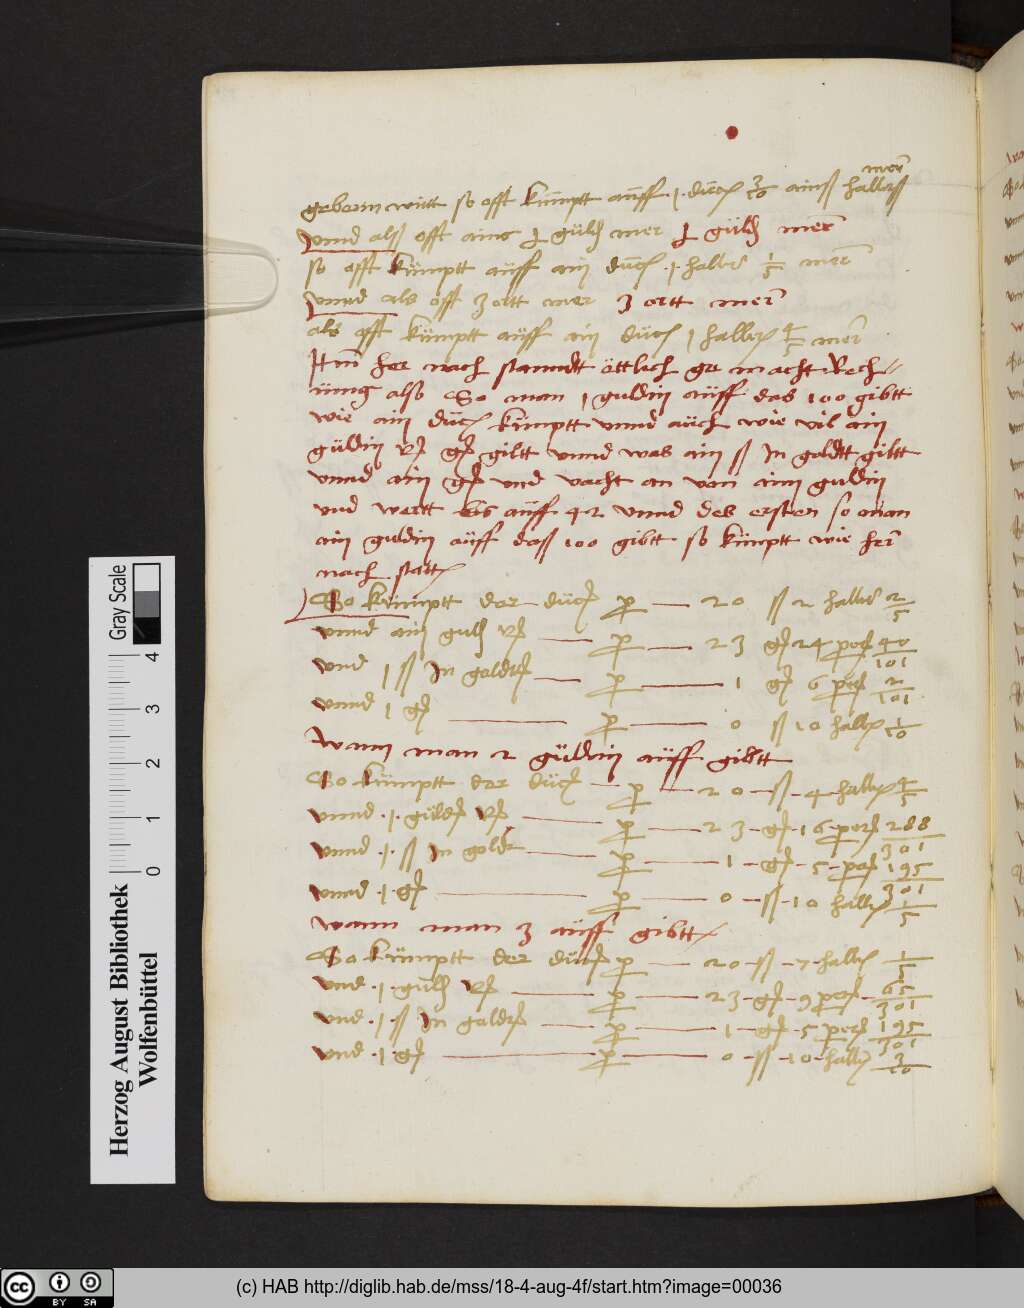 geberin wirtt so offt kümptt aüff 1 düc 3/20 ains hallerß
mer
vnnd alß offt ains ½ güld mer ½ güld mer
so offt kümptt aüff ain düc 1 haller 1/5 mer
vnnd als offt 3 ortt mer 3 ortt mer
als offt kümptt aüff ain düc 1 haller 4/5 mer
Itm her nach stanndtt öttlich ge macht Rech
nüng also So man 1 guldin aüff das 100 gibtt
wie ain düc kümptt vnnd aüch wie vil ain
güldin giltt vnnd was ain ß In goldtt giltt
vnnd ain gß vnd vacht an van aim guldin
vnd wertt bis aüff 42 vnnd des ersten so man
ain guldin aüff daß 100 gibtt so kümptt wie her
nach statt
So kümptt der düc p 20 ß 2 haller 2/5
vnnd ain guld p 23 gß 24 40/101
vnd 1 ß In goldtt p 1 gß 6 2/101
vnnd 1 gß p 0 ß 10 haller 1/20
Wann man 2 güldin aüff gibtt
So kümptt der düc p 20 ß 4 haller 4/5
vnnd 1 güld p 23 gß 16 288/301
vnnd 1 ß In goldt p 1 gß 5 195/301
vnnd 1 gß p 0 ß 10 haller 1/5
wann man 3 aüff gibtt
So kümptt der düc p 20 ß 7 haller 1/5
vnd 1 güld p 23 gß 9 65/301
vnd 1 ß In goldtt p 1 gß 5 195/301
vnd 1 gß p 0 ß 10 haller 3/20
Gray Scale
4
3
2
1
0
Herzog August Bibliothek
Wolfenbüttel
cc BY SA
(c) HAB http://diglib.hab.de/mss/18-4-aug-4f/start.htm?image=00036